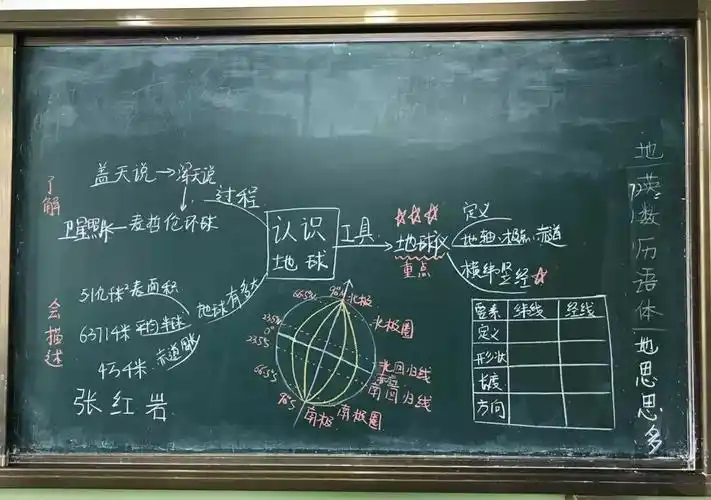 了解
盖天说→浑天说
过程
卫星照片—麦哲伦环球
认识地球
工具
地球仪
重点
定义
地轴、极点、赤道
横纬竖经
会描述
地球有多大
5.1亿千米²表面积
6371千米 平均半径
4万千米 赤道周长
张红岩
90°N 北极
66.5°N
北极圈
23.5°N
0°
23.5°S
66.5°S
90°S
北回归线
赤道
南回归线
南极圈
南极
要素 纬线 经线
定义
形状
长度
方向
地
英
数
历
语
体
地
思
思
多